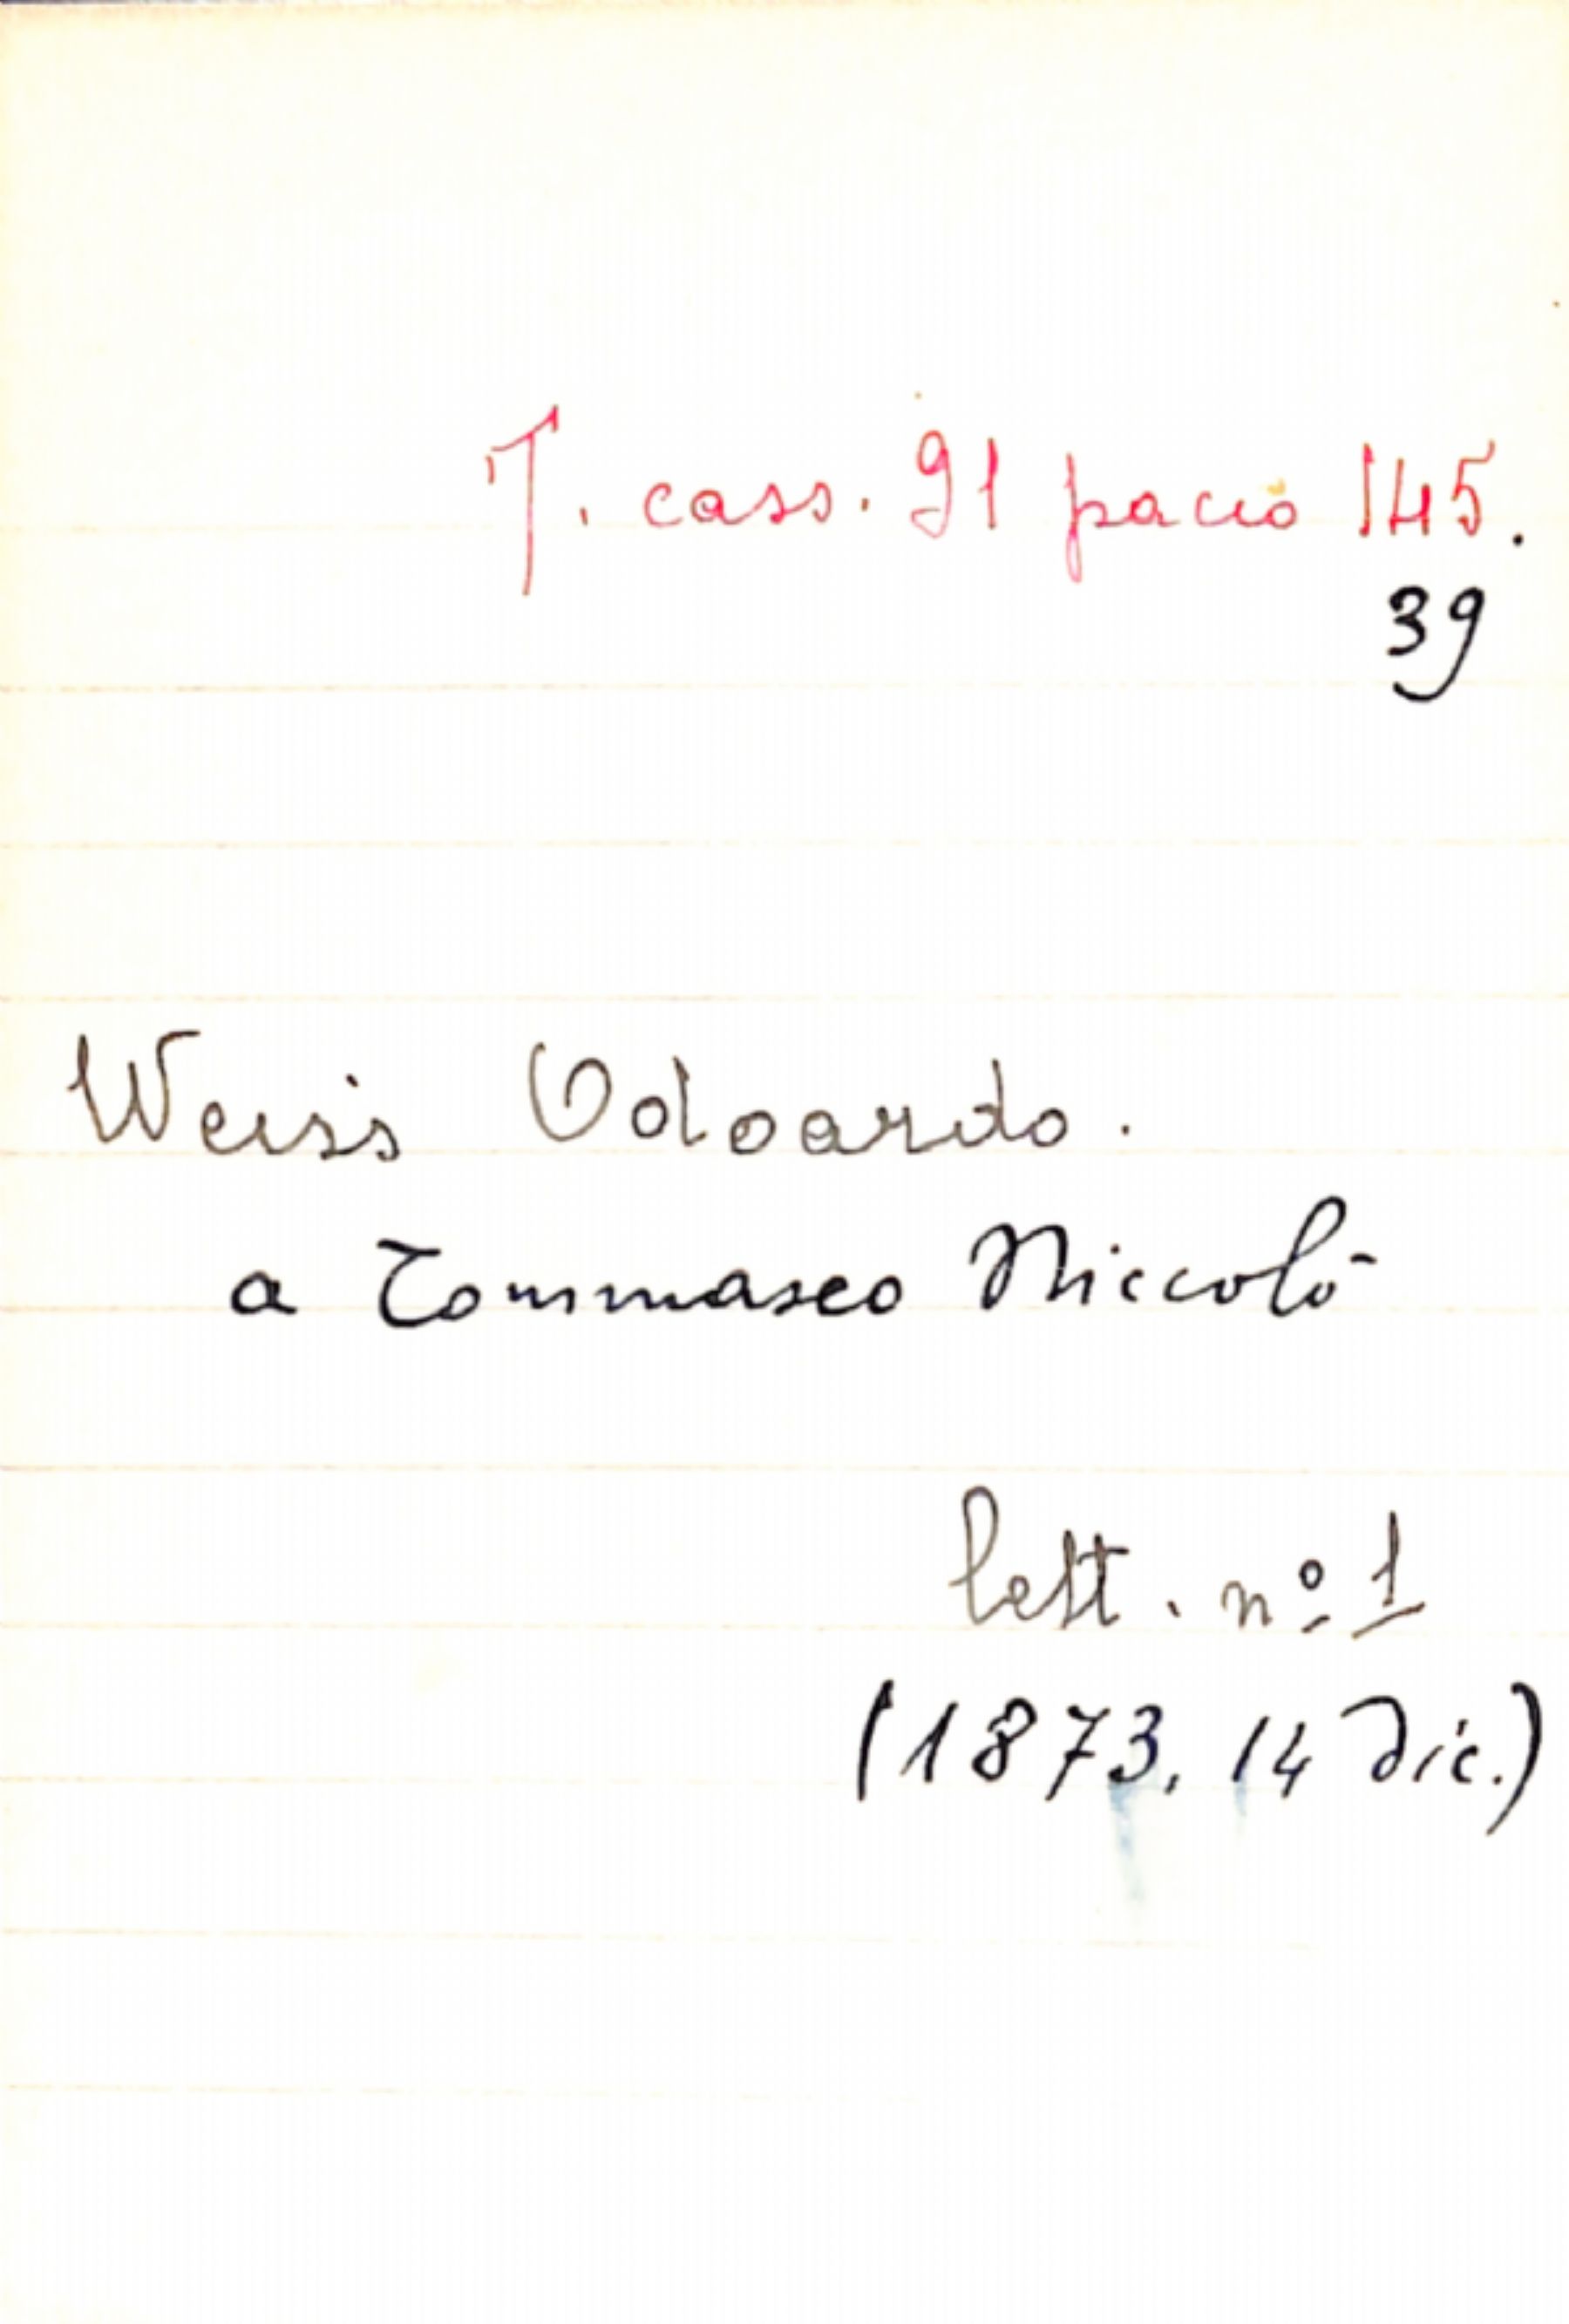 T. cass. 91 pacco 145.
39
Weiss Odoardo.
a Tommaseo Niccolò
lett. nº 1
(1873, 14 Dic.)